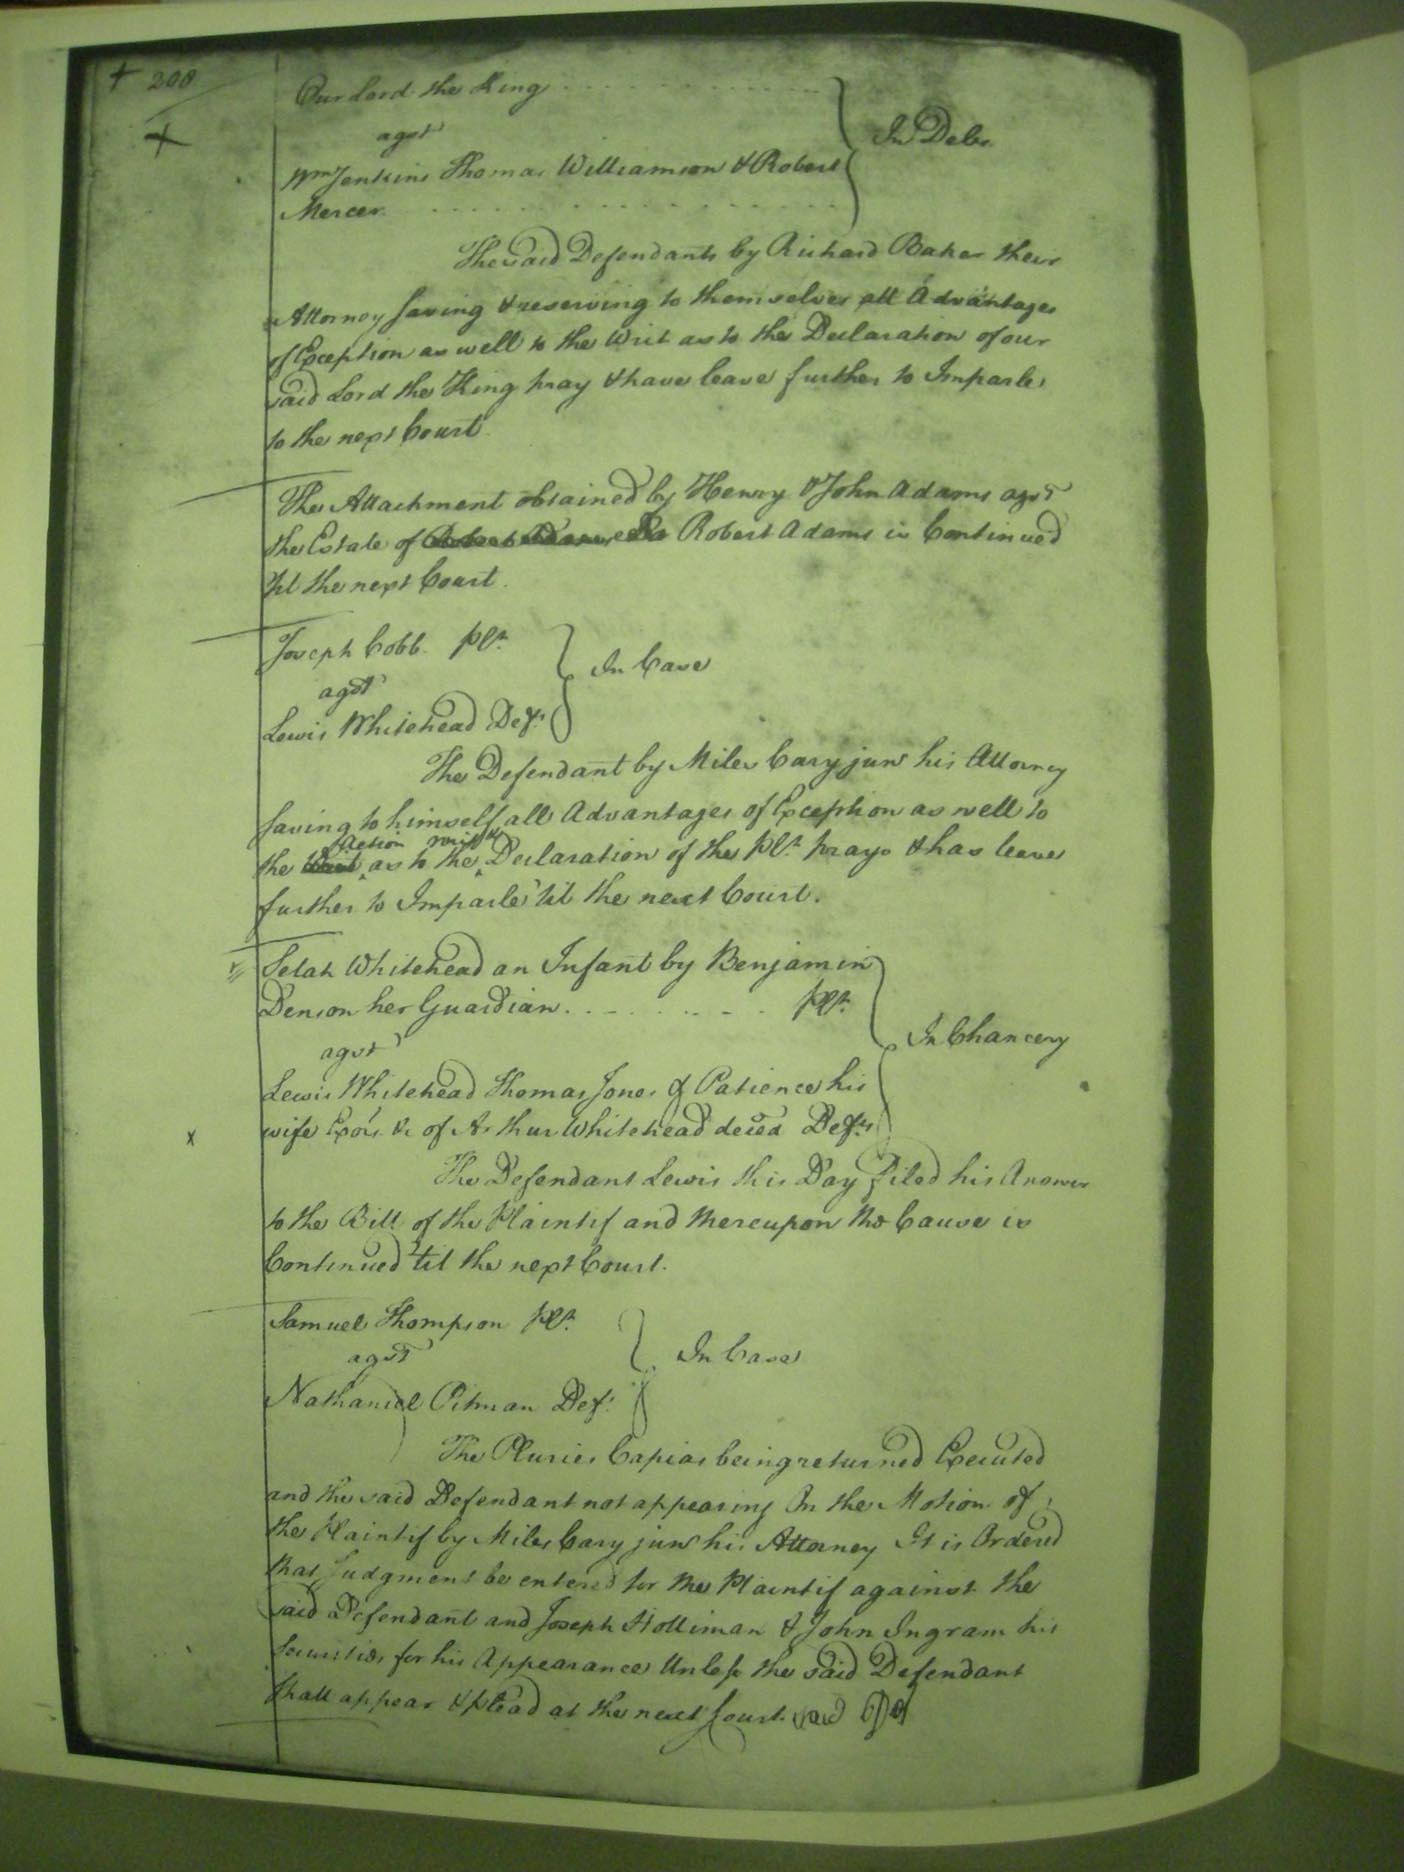 + 208
Our Lord the King
agst
In Debt
Wm Jenkins Thomas Williamson & Robert
Mercer
The said Defendants by Richard Baker their
Attorney saving & reserving to themselves all Advantages
of Exception as well to the Writ as to the Declaration of our
said Lord the King pray & have leave further to Imparle
to the next Court
The Attachment obtained by Henry & John Adams agst
the Estate of Robert Adams is Continued
'til the next Court.
Joseph Cobb Plt.
In Case
agst
Lewis Whitehead Deft.
The Defendant by Miles Cary junr his Attorney
saving to himself all Advantages of Exception as well to
Action Writ &
the as to the Declaration of the Plt. prays & has leave
further to Imparle 'til the next Court.
Selah Whitehead an Infant by Benjamin
Denson her Guardian Plt.
In Chancery
agst
Lewis Whitehead Thomas Jones & Patience his
wife Exors. &c of Arthur Whitehead deced Defts
x
The Defendant Lewis this Day filed his Answer
to the Bill of the Plaintif and thereupon the Cause is
Continued 'til the next Court.
Samuel Thompson Plt.
agst
In Case
Nathaniel Pitman Deft.
The Pluries Capias being returned Executed
and the said Defendant not appearing On the Motion of
the Plaintif by Miles Cary junr his Attorney It is Ordered
that Judgment be entered for the Plaintif against the
said Defendant and Joseph Holliman & John Ingram his
Securities for his Appearance Unless the said Defendant
shall appear & plead at the next Court